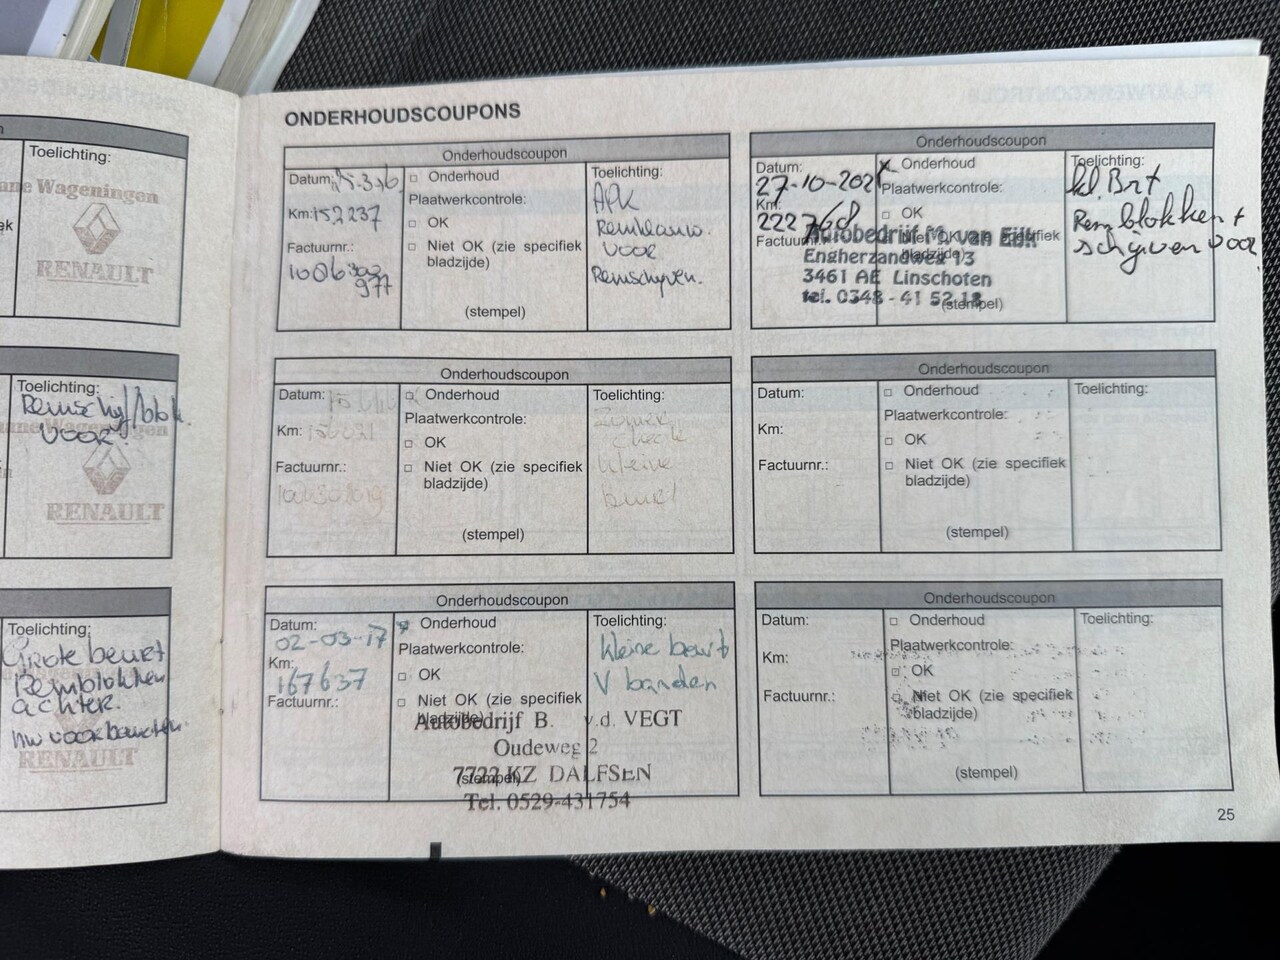 Toelichting:
ane Wageningen
RENAULT
Toelichting:
Remschijf/blok
voor.
ane Wageningen
RENAULT
Toelichting:
Grote beurt
Remblokken
achter.
RENAULT
ONDERHOUDSCOUPONS
Onderhoudscoupon
Datum:
Km: 152237
Factuurnr.:
Onderhoud
Plaatwerkcontrole:
OK
Niet OK (zie specifiek
bladzijde)
(stempel)
Toelichting:
APK
voor
Remschijven.
Onderhoudscoupon
Datum:
Km:
Factuurnr.:
Onderhoud
Plaatwerkcontrole:
OK
Niet OK (zie specifiek
bladzijde)
(stempel)
Toelichting:
Zomer
check
kleine
beurt
Onderhoudscoupon
Datum:
02-03-17
Km:
167637
Factuurnr.:
Onderhoud
Plaatwerkcontrole:
OK
Niet OK (zie specifiek
bladzijde)
(stempel)
Toelichting:
kleine beurt
V banden
Autobedrijf B. v.d. VEGT
Oudeweg 2
7722 KZ DALFSEN
Tel. 0529-431754
Onderhoudscoupon
Datum:
27-10-202
Km:
Factuurnr.:
x Onderhoud
Plaatwerkcontrole:
OK
Niet OK (zie specifiek
bladzijde)
(stempel)
Toelichting:
kl. Brt
Remblokken +
schijven voor
Autobedrijf M. van Eijk
Engherzandweg 13
3461 AE Linschoten
tel. 0348 - 41 52 18
Onderhoudscoupon
Datum:
Km:
Factuurnr.:
Onderhoud
Plaatwerkcontrole:
OK
Niet OK (zie specifiek
bladzijde)
(stempel)
Toelichting:
Onderhoudscoupon
Datum:
Km:
Factuurnr.:
Onderhoud
Plaatwerkcontrole:
OK
Niet OK (zie specifiek
bladzijde)
(stempel)
Toelichting:
25